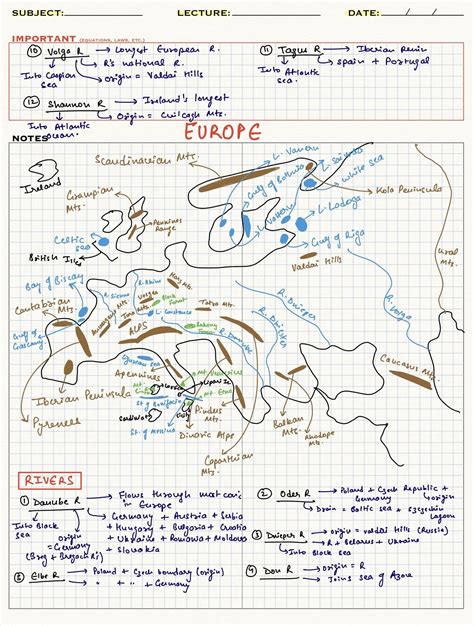 SUBJECT: LECTURE: DATE: / /
IMPORTANT (EQUATIONS, LAWS, ETC.)
⑩ Volga R → Longest European R.
→ R's national R.
→ origin = Valdai Hills
Into Caspian sea
⑪ Tagus R → Iberian Penin
→ Spain + Portugal
Into Atlantic sea
⑫ Shannon R → Ireland's longest
→ Origin = Cuilcagh Mts
Into Atlantic ocean.
NOTES
EUROPE
Scandinavian Mts.
L. Vanern
White sea
Gulf of Bothnia
Kola Peninsula
L. Ladoga
Gulf of Riga
Valdai Hills
Ural Mts.
Ireland
Grampian Mts.
Pennines Range
Celtic sea
British Isles
Bay of Biscay
Cantabrian Mts
Gulf of Gascony
R. Rhine
Vosges
Black Forest
Tatra Mt.
R. Dnieper
R. Dniester
R. Volga
ALPS
Ligurian sea
Apennines
Iberian Peninsula
Pyrenees
Sardinia
St. of Bonifacio
St. of Messina
Mt. Etna
Lipari Is
Pindus Mts.
Dinaric Alps
Carpathian Mts.
Balkan Mts.
Rhodope Mts.
Caucasus Mts.
RIVERS
① Danube R → Flows through most coun. in Europe
→ Germany + Austria + Serbia
+ Hungary + Bulgaria + Croatia
+ Ukraine + Romania + Moldova
+ Slovakia
Into Black sea
origin = Germany
(Breg + Brigach R.)
② Oder R → Poland + Czech Republic + Germany (origin)
→ Drain = Baltic sea + Szczecin Lagoon
③ Dnieper R → origin = Valdai hills (Russia)
→ R + Belarus + Ukraine
Into Black sea
⑧ Elbe R → Poland + Czech boundary (origin)
→ " " + Germany
④ Don R → origin = R
→ Joins sea of Azore